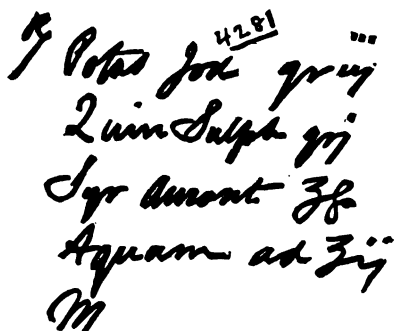 ℞ 4281
Potas Iod gr iij
Quin Sulph gr j
Syr Aurant ʒss
Aquam ad ʒij
M